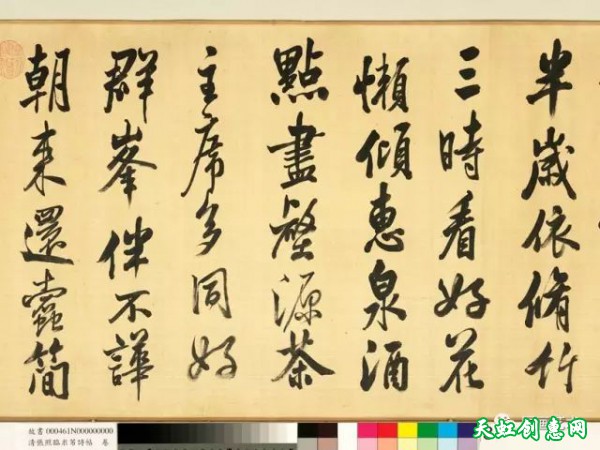 半歲依脩竹
三時看好花
懶傾惠泉酒
點盡壑源茶
主席多同好
群峯伴不譁
朝来還蠹簡
故書 000461N000000000
清張照臨米芾詩帖 卷
天虹创惠网